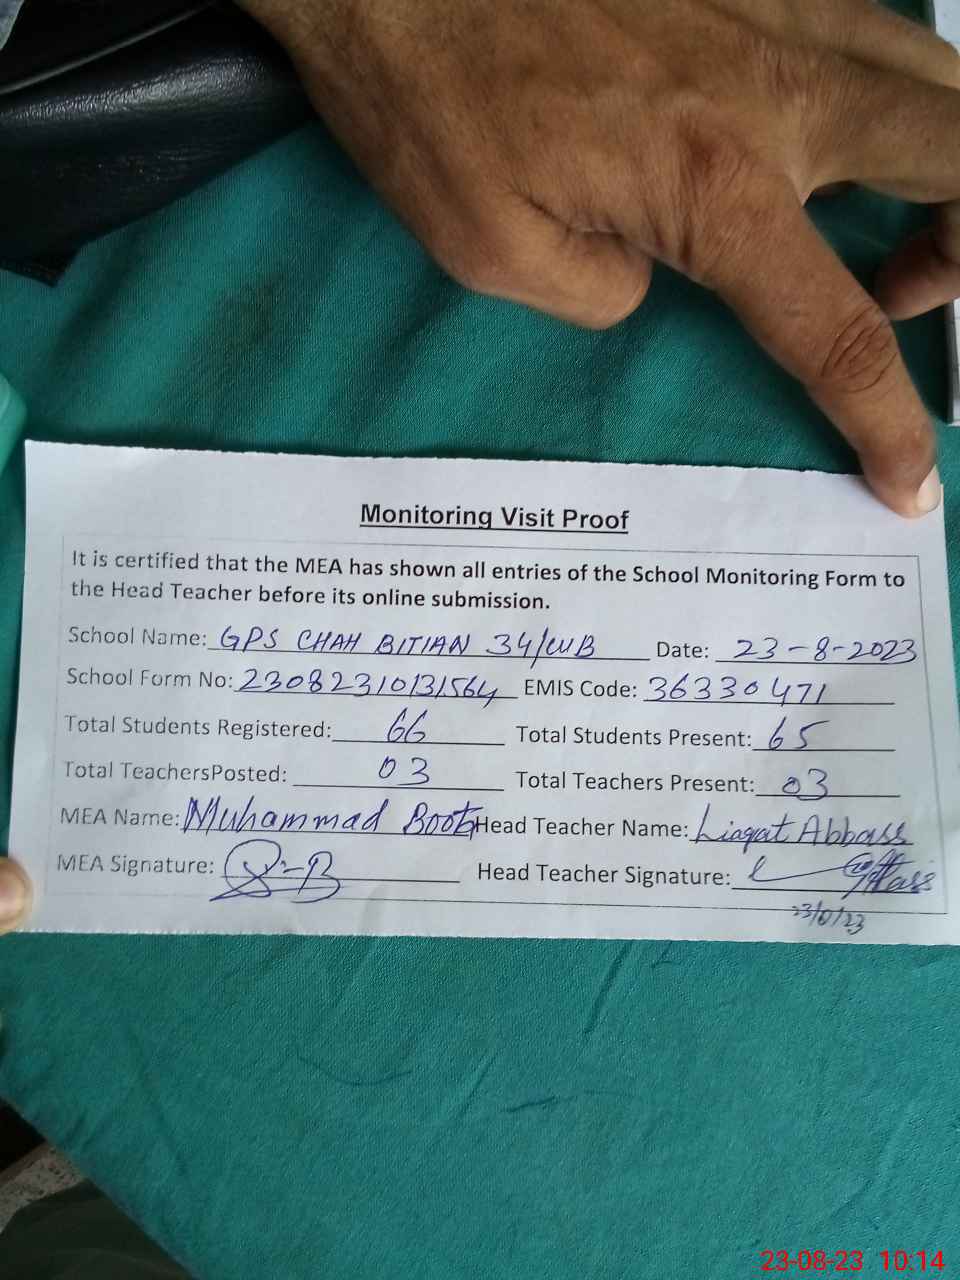 Monitoring Visit Proof
It is certified that the MEA has shown all entries of the School Monitoring Form to
the Head Teacher before its online submission.
School Name: GPS CHAH BITIAN 34/WB Date: 23-8-2023
School Form No: 23082310131564 EMIS Code: 36330471
Total Students Registered: 66 Total Students Present: 65
Total TeachersPosted: 03 Total Teachers Present: 03
MEA Name: Muhammad Boota Head Teacher Name: Liaqat Abbass
MEA Signature: Head Teacher Signature:
23-08-23 10:14